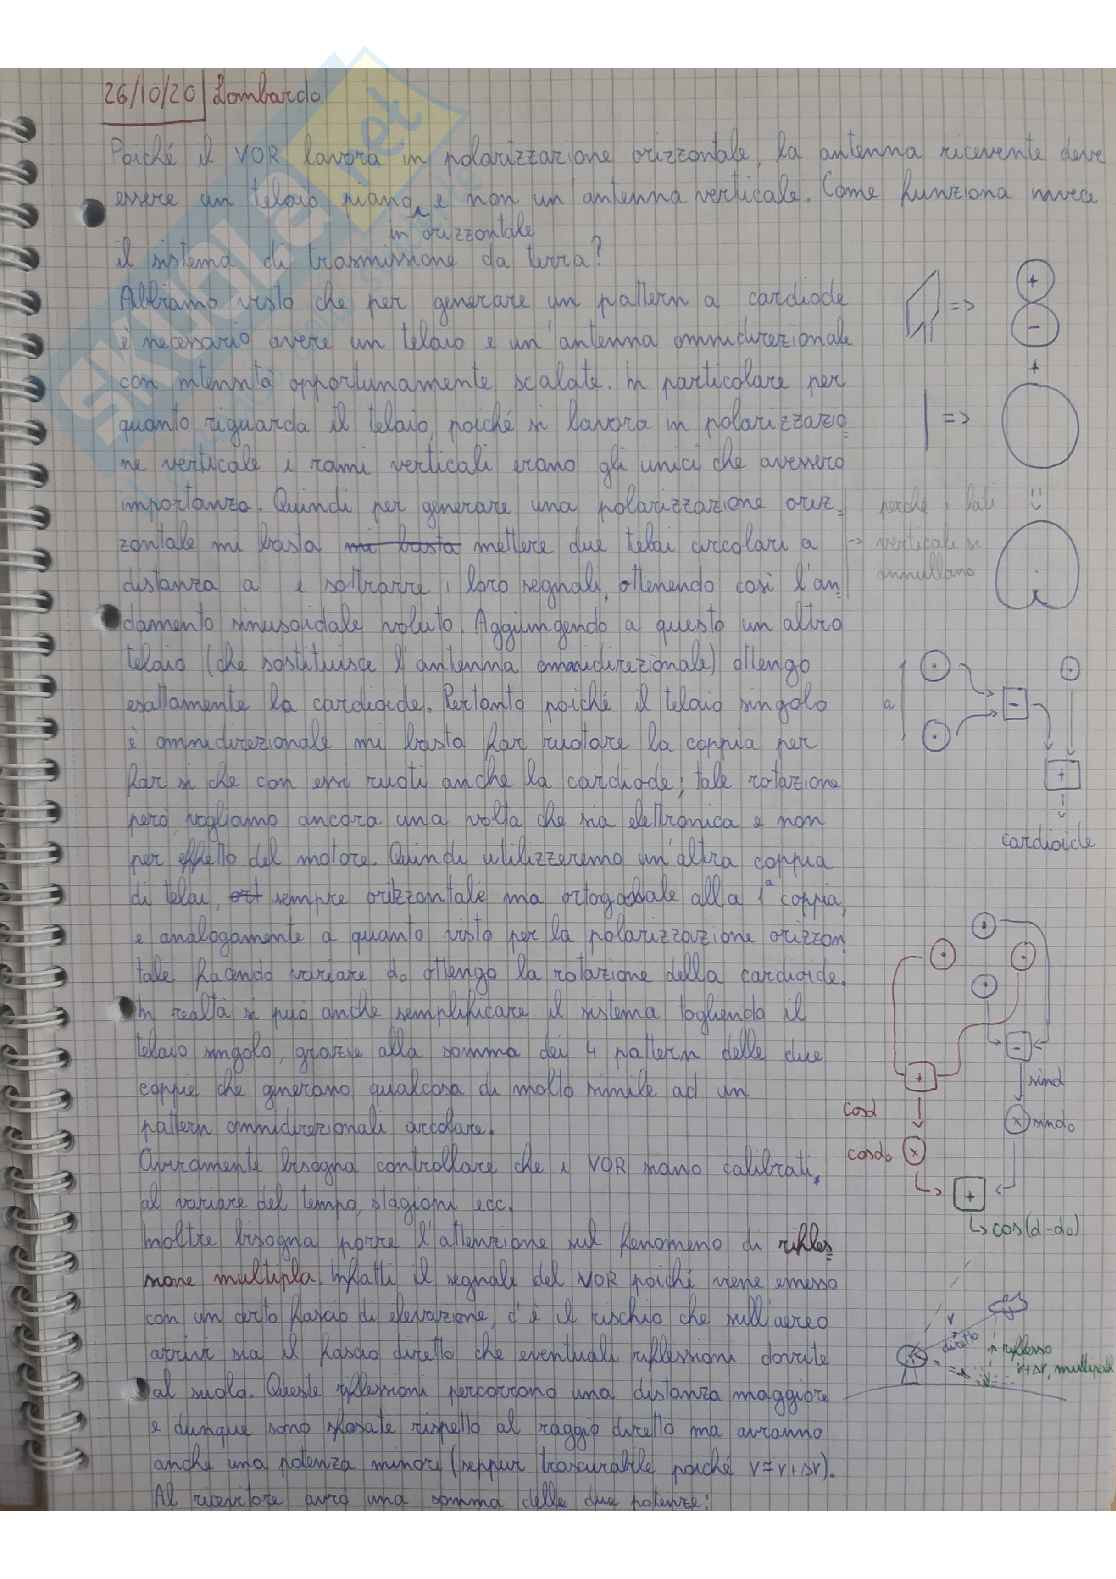 26/10/20 Lombardo
Poiché il VOR lavora in polarizzazione orizzontale, la antenna ricevente deve
essere un telaio in orizzontale e non un'antenna verticale. Come funziona invece
il sistema di trasmissione da terra?
Abbiamo visto che per generare un pattern a cardiode
è necessario avere un telaio e un'antenna omnidirezionale
con intensità opportunamente scalate. In particolare per
quanto riguarda il telaio, poiché si lavora in polarizzazio
ne verticale i rami verticali erano gli unici che avessero
importanza. Quindi per generare una polarizzazione oriz
zontale mi basta mi basta mettere due telai circolari a
distanza a e sottrarre i loro segnali, ottenendo così l'an
damento sinusoidale voluto. Aggiungendo a questo un altro
telaio (che sostituisce l'antenna omnidirezionale) ottengo
esattamente la cardioide. Pertanto poiché il telaio singolo
è omnidirezionale mi basta far ruotare la coppia per
far sì che con essi ruoti anche la cardiode; tale rotazione
però vogliamo ancora una volta che sia elettronica e non
per effetto del motore. Quindi utilizzeremo un'altra coppia
di telai, ort sempre orizzontale ma ortogonale alla 1ª coppia,
e analogamente a quanto visto per la polarizzazione orizzon
tale facendo variare d₀ ottengo la rotazione della cardioide.
In realtà si può anche semplificare il sistema togliendo il
telaio singolo, grazie alla somma dei 4 pattern delle due
coppie che generano qualcosa di molto simile ad un
pattern omnidirezionali circolare.
Ovviamente bisogna controllare che i VOR siano calibrati,
al variare del tempo, stagioni ecc.
Inoltre bisogna porre l'attenzione sul fenomeno di rifles
sione multipla. Infatti il segnale del VOR poiché viene emesso
con un certo fascio di elevazione, c'è il rischio che sull'aereo
arrivi sia il fascio diretto che eventuali riflessioni dovute
al suolo. Queste riflessioni percorrono una distanza maggiore
e dunque sono sfasate rispetto al raggio diretto ma avranno
anche una potenza minore (seppur trascurabile poiché r≃r+Δr).
Al ricevitore avrò una somma delle due potenze:
=>
+
-
+
=>
=
perché i lati
-> verticali si
annullano
a
-
+
cardioide
-
+
sind
cosd
x sind₀
cosd₀ x
+
cos(d-d₀)
r
diretto
riflesso
r+Δr, multipath
SKUOLA.net